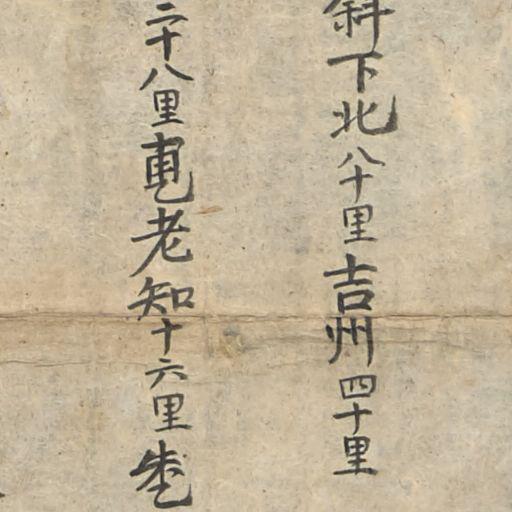 斜下北八十里吉州四十里
二十八里老知十六里